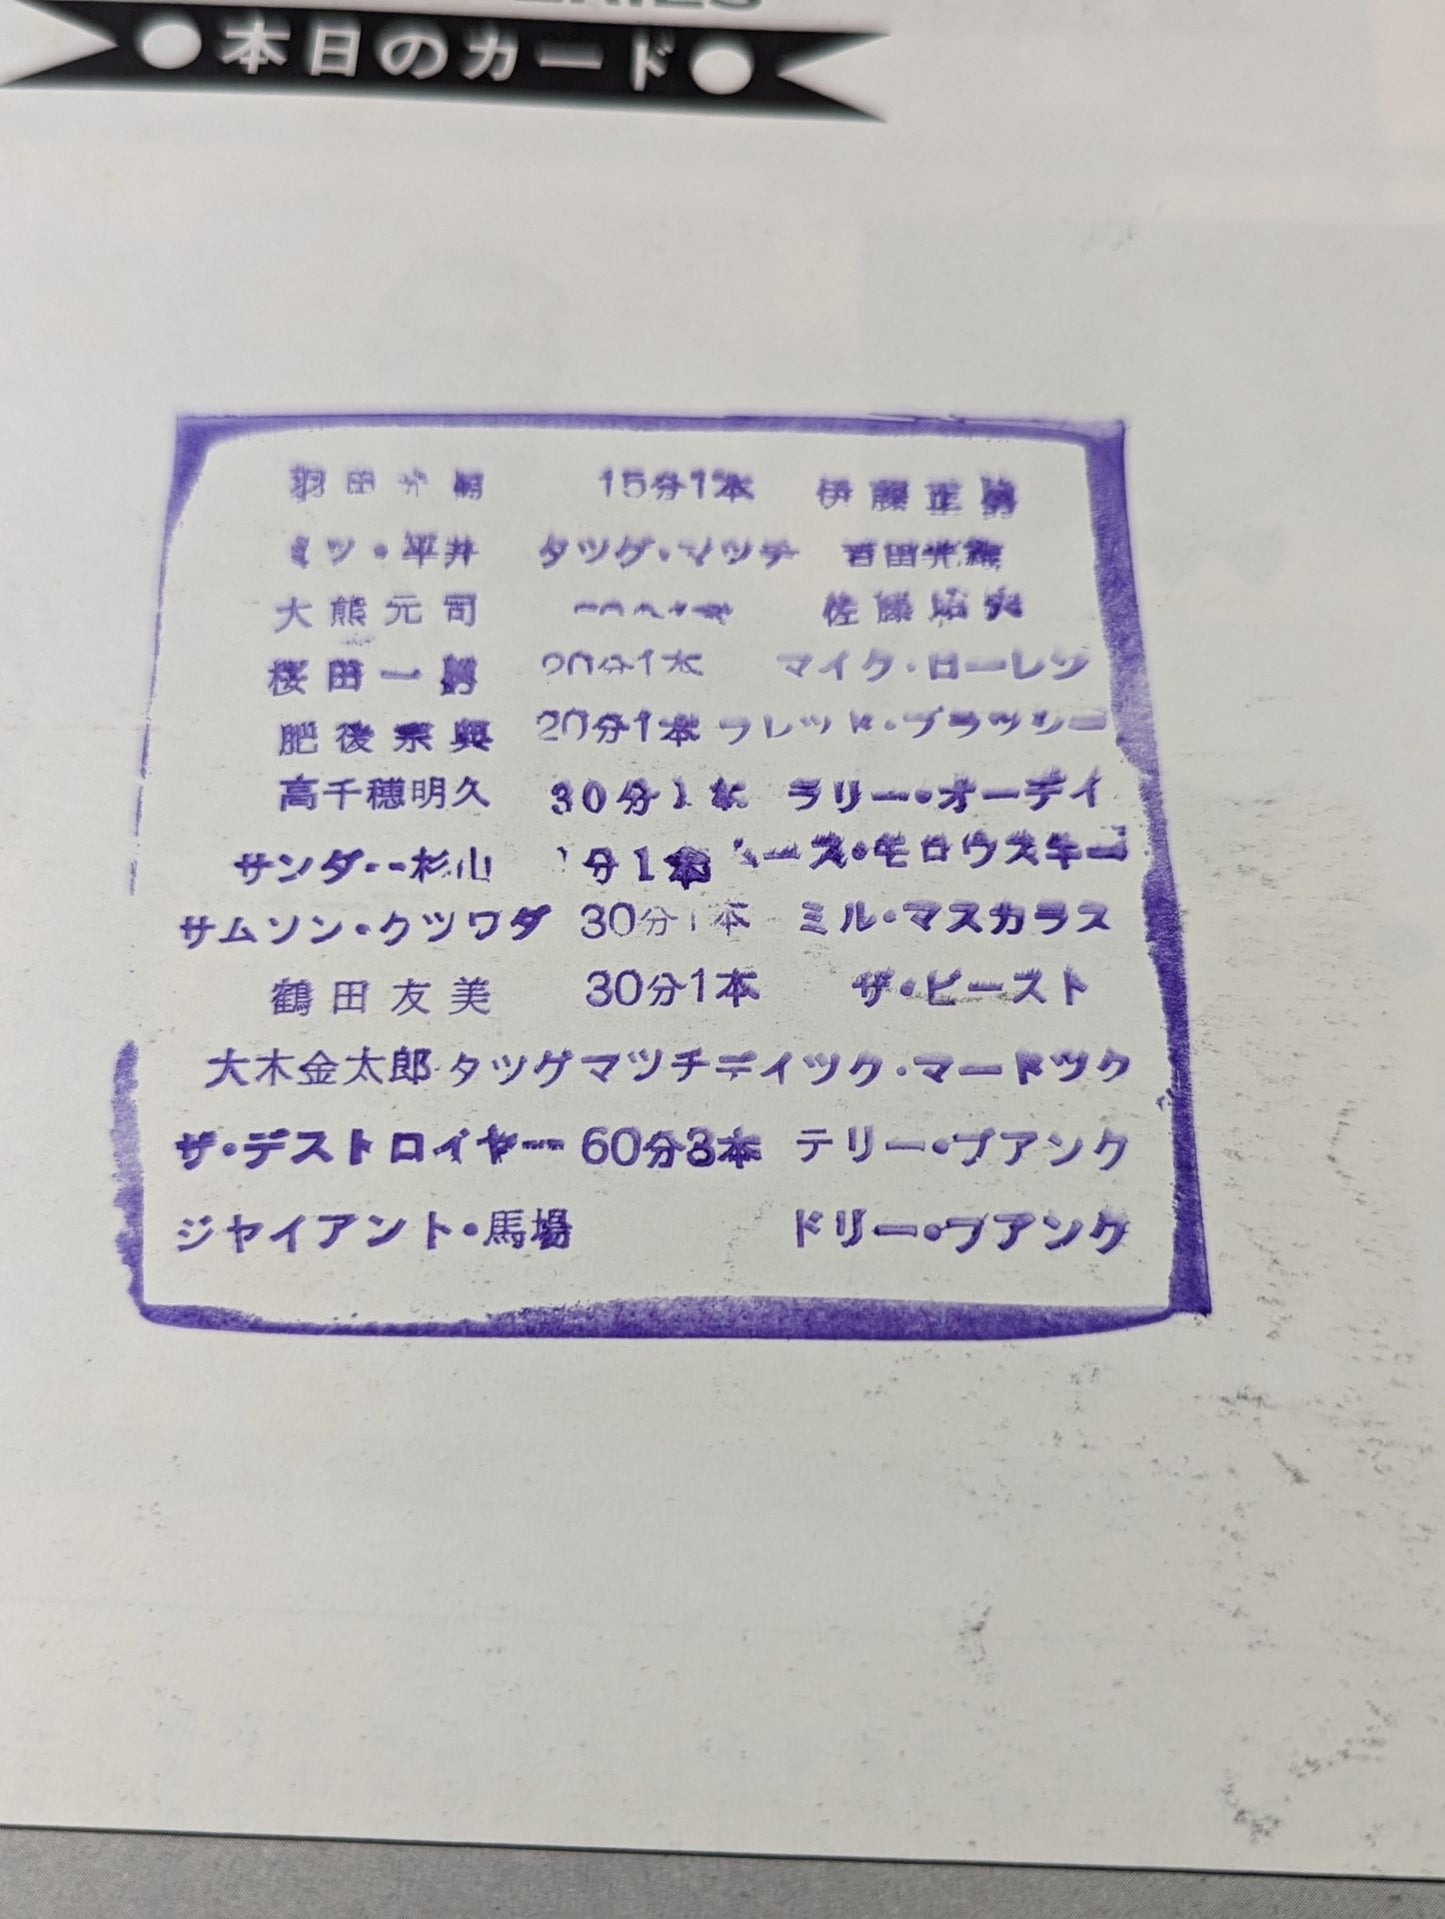 ●本日のカード●
羽田光男 15分1本 伊藤正男
ミツ・平井 タツグ・マツチ 百田光雄
大熊元司 佐藤昭夫
桜田一男 20分1本 マイク・ローレン
肥後宗典 20分1本 フレツド・ブラツシー
高千穂明久 30分1本 ラリー・オーデイ
サンダー杉山 分1本 ース・モロウスキー
サムソン・クツワダ 30分1本 ミル・マスカラス
鶴田友美 30分1本 ザ・ビースト
大木金太郎 タツグマツチ デイツク・マードツク
ザ・デストロイヤー 60分3本 テリー・フアンク
ジヤイアント・馬場 ドリー・フアンク